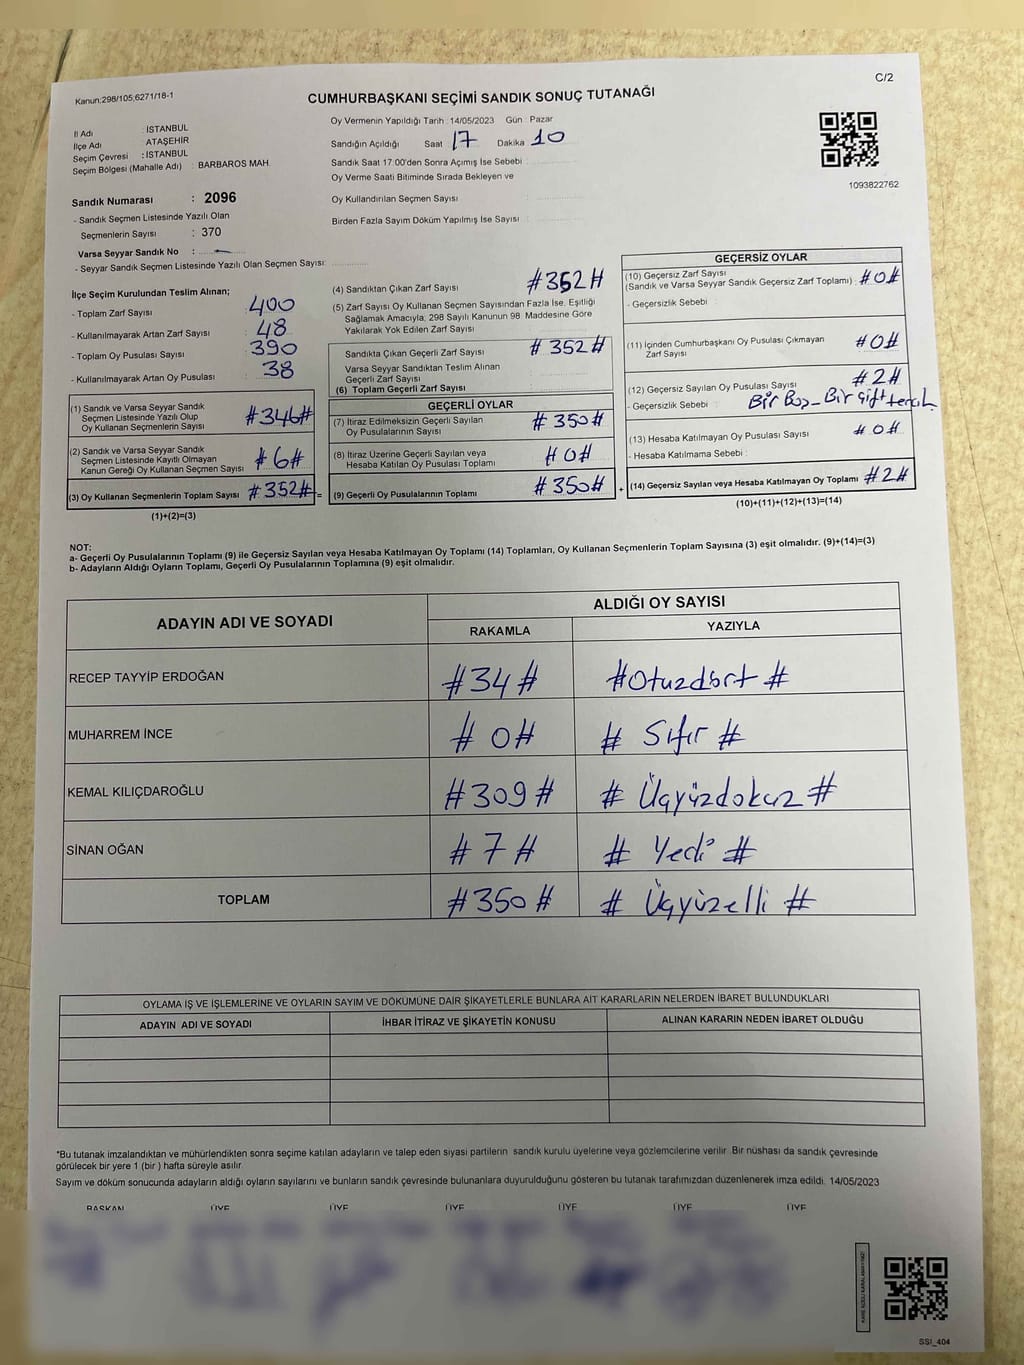 C/2
Kanun;298/105;6271/18-1
CUMHURBAŞKANI SEÇİMİ SANDIK SONUÇ TUTANAĞI
İl Adı : İSTANBUL
İlçe Adı ATAŞEHİR
Seçim Çevresi : İSTANBUL
Seçim Bölgesi (Mahalle Adı) : BARBAROS MAH.
Oy Vermenin Yapıldığı Tarih : 14/05/2023 Gün : Pazar
Sandığın Açıldığı Saat 17 Dakika 10
Sandık Saat 17:00'den Sonra Açımış İse Sebebi :
Oy Verme Saati Bitiminde Sırada Bekleyen ve
Oy Kullandırılan Seçmen Sayısı :
Birden Fazla Sayım Döküm Yapılmış İse Sayısı :
1093822762
Sandık Numarası : 2096
- Sandık Seçmen Listesinde Yazılı Olan
Seçmenlerin Sayısı : 370
Varsa Seyyar Sandık No : -
- Seyyar Sandık Seçmen Listesinde Yazılı Olan Seçmen Sayısı:
İlçe Seçim Kurulundan Teslim Alınan;
- Toplam Zarf Sayısı : 400
- Kullanılmayarak Artan Zarf Sayısı : 48
- Toplam Oy Pusulası Sayısı : 390
- Kullanılmayarak Artan Oy Pusulası : 38
(1) Sandık ve Varsa Seyyar Sandık
Seçmen Listesinde Yazılı Olup
Oy Kullanan Seçmenlerin Sayısı #346#
(2) Sandık ve Varsa Seyyar Sandık
Seçmen Listesinde Kayıtlı Olmayan
Kanun Gereği Oy Kullanan Seçmen Sayısı #6#
(3) Oy Kullanan Seçmenlerin Toplam Sayısı #352# =
(1)+(2)=(3)
(4) Sandıktan Çıkan Zarf Sayısı #352#
(5) Zarf Sayısı Oy Kullanan Seçmen Sayısından Fazla İse, Eşitliği
Sağlamak Amacıyla, 298 Sayılı Kanunun 98. Maddesine Göre
Yakılarak Yok Edilen Zarf Sayısı :
Sandıkta Çıkan Geçerli Zarf Sayısı #352#
Varsa Seyyar Sandıktan Teslim Alınan
Geçerli Zarf Sayısı
(6) Toplam Geçerli Zarf Sayısı
GEÇERLİ OYLAR
(7) İtiraz Edilmeksizin Geçerli Sayılan
Oy Pusulalarının Sayısı #350#
(8) İtiraz Üzerine Geçerli Sayılan veya
Hesaba Katılan Oy Pusulası Toplamı #0#
(9) Geçerli Oy Pusulalarının Toplamı #350# +
GEÇERSİZ OYLAR
(10) Geçersiz Zarf Sayısı
(Sandık ve Varsa Seyyar Sandık Geçersiz Zarf Toplamı) : #0#
- Geçersizlik Sebebi :
(11) İçinden Cumhurbaşkanı Oy Pusulası Çıkmayan
Zarf Sayısı #0#
(12) Geçersiz Sayılan Oy Pusulası Sayısı #2#
- Geçersizlik Sebebi : Bir Boş - Bir Çift tercih
(13) Hesaba Katılmayan Oy Pusulası Sayısı #0#
- Hesaba Katılmama Sebebi :
(14) Geçersiz Sayılan veya Hesaba Katılmayan Oy Toplamı #2#
(10)+(11)+(12)+(13)=(14)
NOT:
a- Geçerli Oy Pusulalarının Toplamı (9) ile Geçersiz Sayılan veya Hesaba Katılmayan Oy Toplamı (14) Toplamları, Oy Kullanan Seçmenlerin Toplam Sayısına (3) eşit olmalıdır. (9)+(14)=(3)
b- Adayların Aldığı Oyların Toplamı, Geçerli Oy Pusulalarının Toplamına (9) eşit olmalıdır.
ADAYIN ADI VE SOYADI ALDIĞI OY SAYISI
RAKAMLA YAZIYLA
RECEP TAYYİP ERDOĞAN #34# #Otuzdört#
MUHARREM İNCE #0# # Sıfır #
KEMAL KILIÇDAROĞLU #309# # Üçyüzdokuz #
SİNAN OĞAN #7# # Yedi #
TOPLAM #350# # Üçyüzelli #
OYLAMA İŞ VE İŞLEMLERİNE VE OYLARIN SAYIM VE DÖKÜMÜNE DAİR ŞİKAYETLERLE BUNLARA AİT KARARLARIN NELERDEN İBARET BULUNDUKLARI
ADAYIN ADI VE SOYADI İHBAR İTİRAZ VE ŞİKAYETİN KONUSU ALINAN KARARIN NEDEN İBARET OLDUĞU
*Bu tutanak imzalandıktan ve mühürlendikten sonra seçime katılan adayların ve talep eden siyasi partilerin sandık kurulu üyelerine veya gözlemcilerine verilir. Bir nüshası da sandık çevresinde
görülecek bir yere 1 (bir ) hafta süreyle asılır.
Sayım ve döküm sonucunda adayların aldığı oyların sayılarını ve bunların sandık çevresinde bulunanlara duyurulduğunu gösteren bu tutanak tarafımızdan düzenlenerek imza edildi. 14/05/2023
BAŞKAN ÜYE ÜYE ÜYE ÜYE ÜYE ÜYE
SSI_404